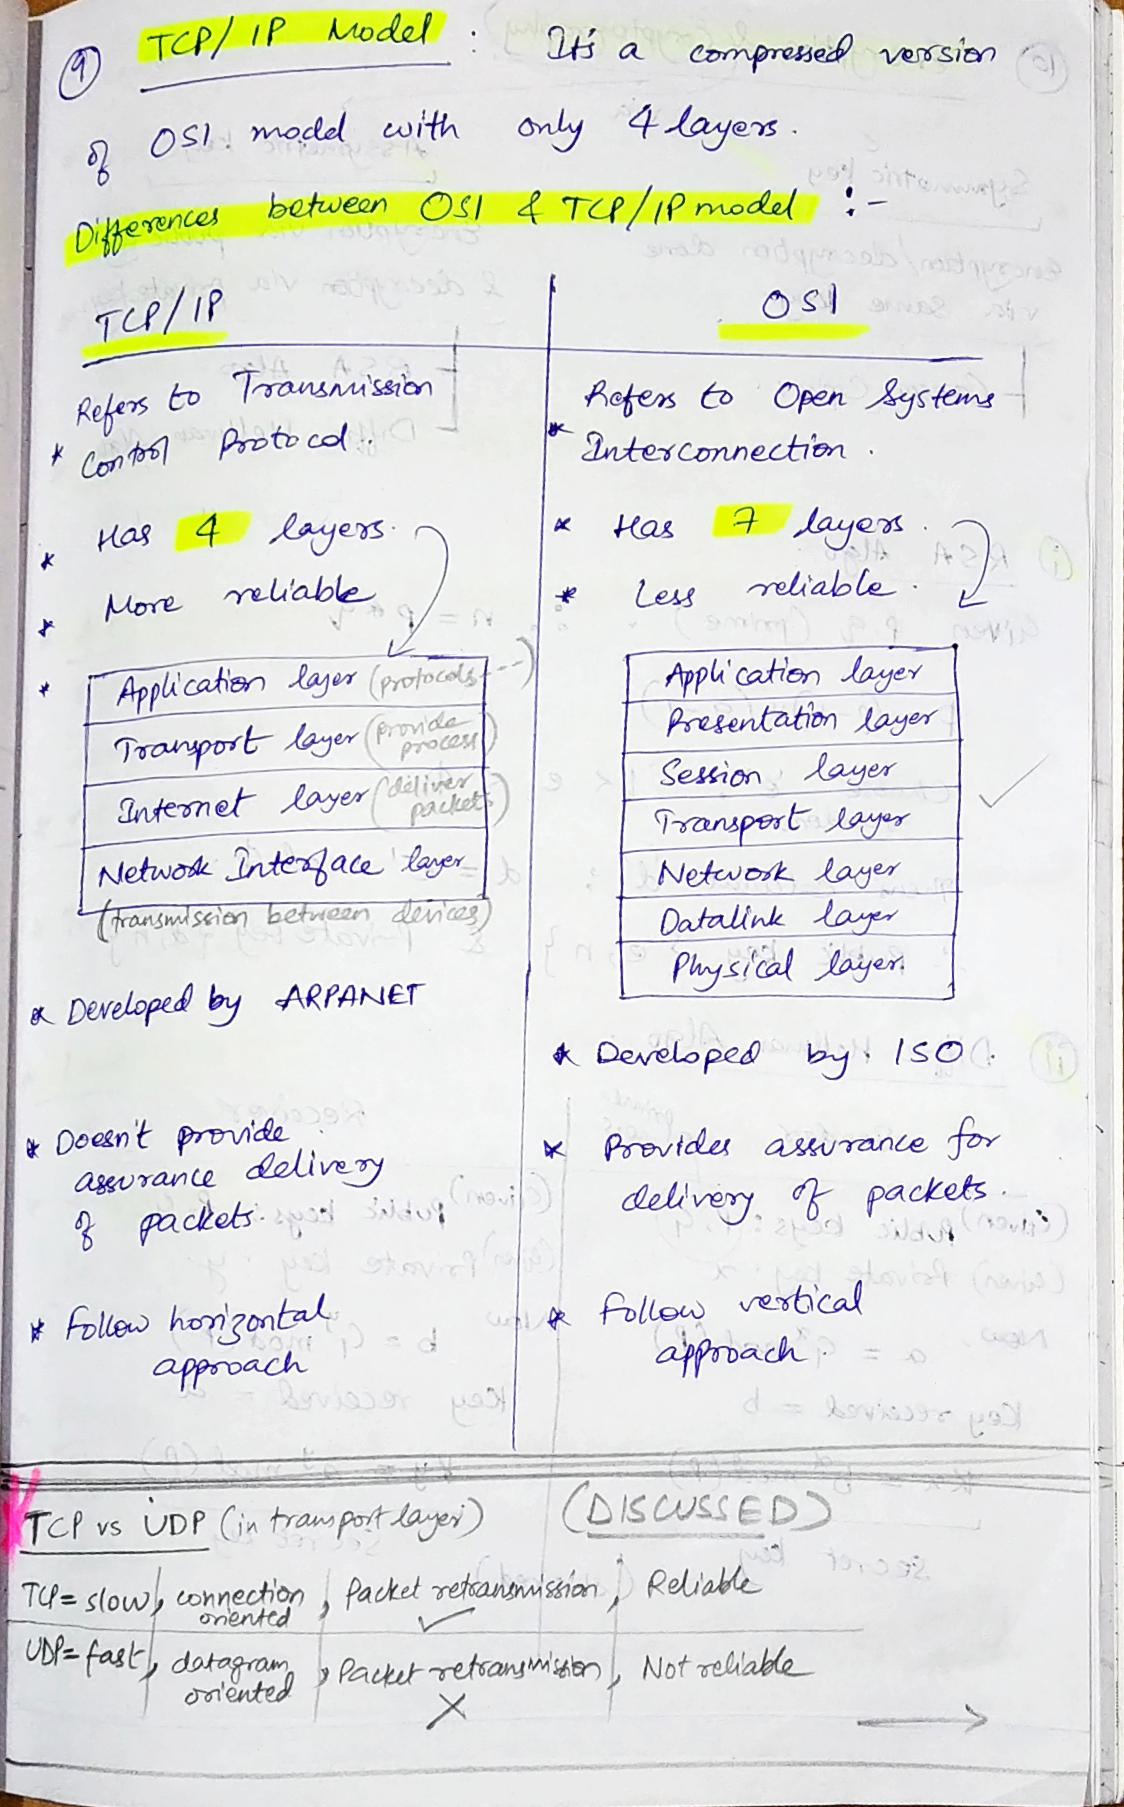 9 TCP/IP Model : It's a compressed version
of OSI model with only 4 layers.
Differences between OSI & TCP/IP model :-
TCP/IP
Refers to Transmission
* Control Protocol.
* Has 4 layers.
* More reliable
* Application layer (protocols ---)
Transport layer (provide process)
Internet layer (deliver packets)
Network Interface layer
(transmission between devices)
* Developed by ARPANET
* Doesn't provide
assurance delivery
of packets.
* Follow horizontal
approach
OSI
Refers to Open Systems
* Interconnection.
* Has 7 layers.
* Less reliable.
Application layer
Presentation layer
Session layer
Transport layer
Network layer
Datalink layer
Physical layer.
* Developed by ISO.
* Provides assurance for
delivery of packets.
* Follow vertical
approach.
TCP vs UDP (in transport layer) (DISCUSSED)
TCP = slow, connection oriented, Packet retransmission ✓, Reliable
UDP = fast, datagram oriented, Packet retransmission X, Not reliable